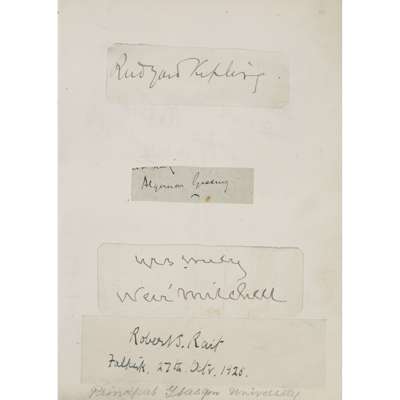 Rudyard Kipling
Algernon Gissing
Weir Mitchell
Robert S. Rait
Falkirk, 27th Oct. 1926.
Principal Glasgow University